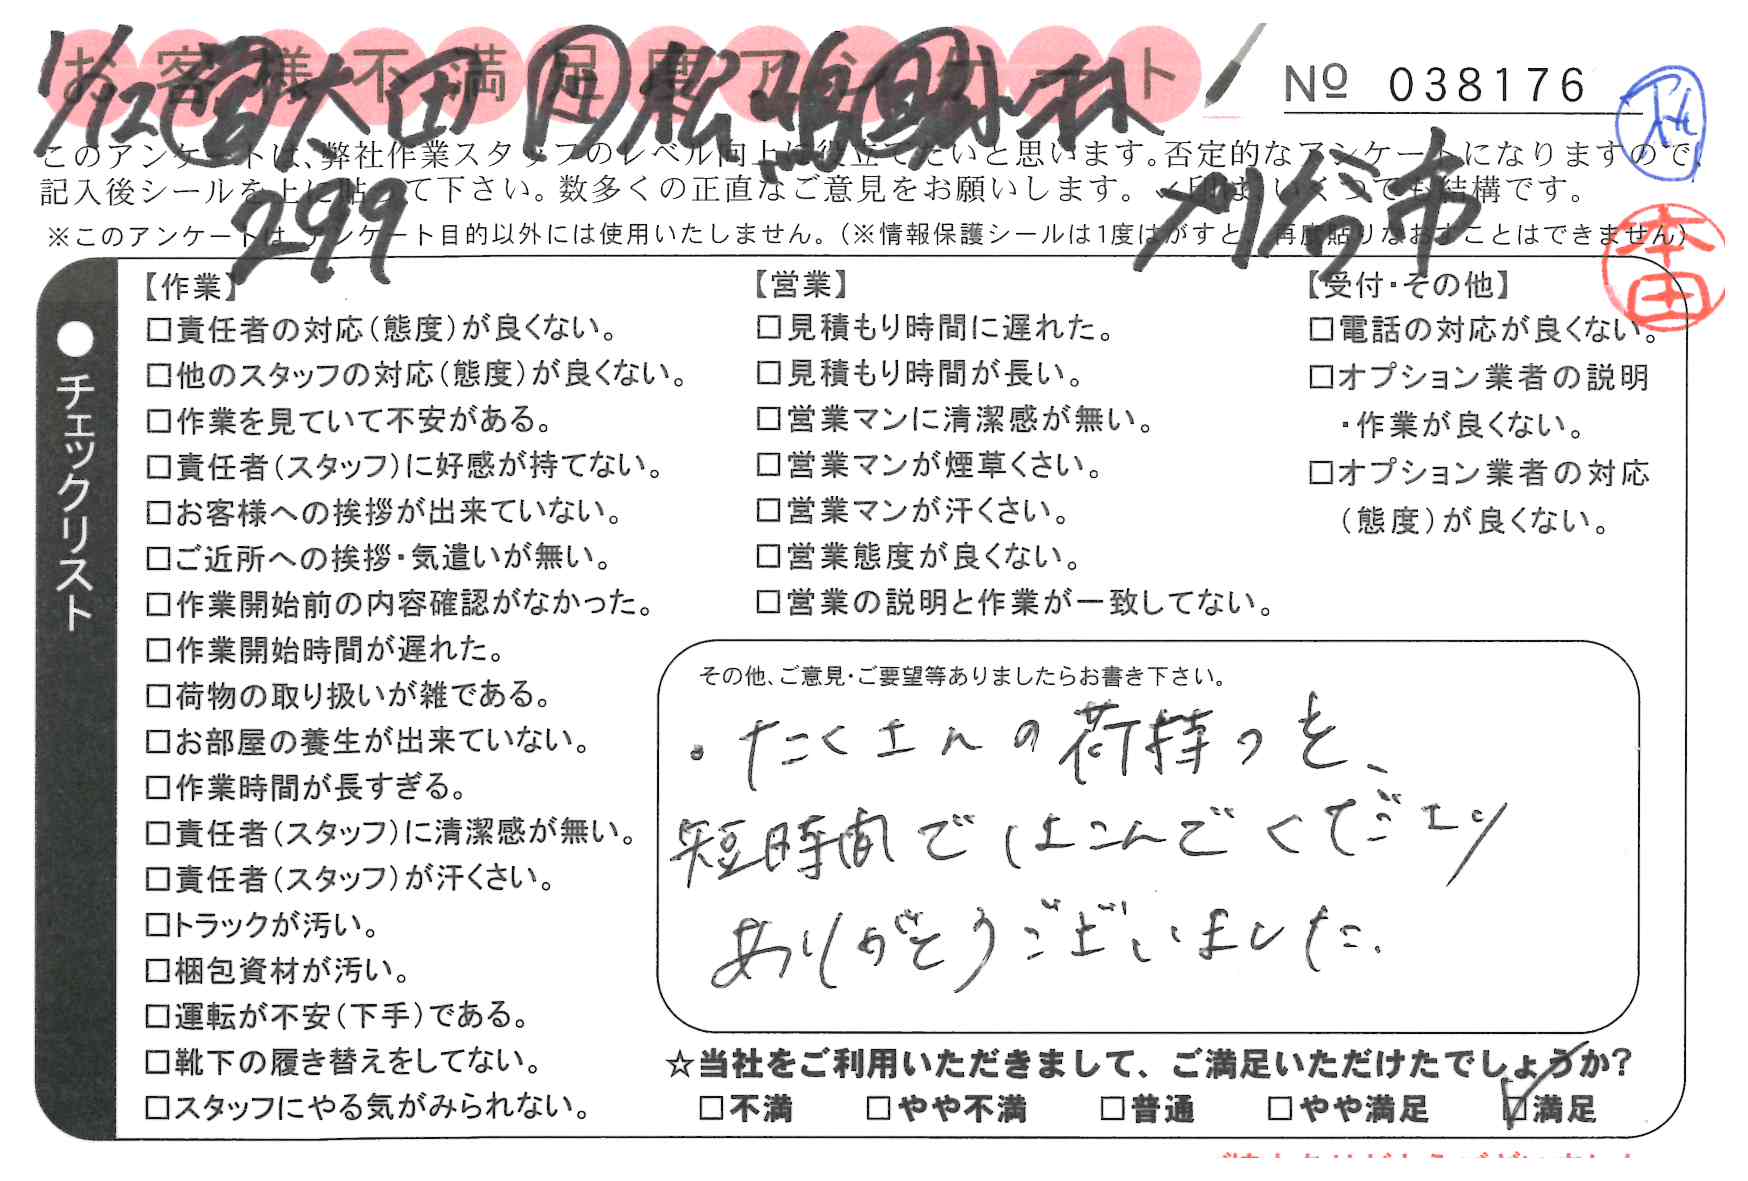 お客様不満足度アンケート
№ 038176
1/12 太田 月 松 小林
このアンケートは、弊社作業スタッフのレベル向上に役立てたいと思います。否定的なアンケートになりますので、
記入後シールを上に貼って下さい。数多くの正直なご意見をお願いします。✓印は、いくつでも結構です。
299 刈谷市
※このアンケートは、アンケート目的以外には使用いたしません。(※情報保護シールは1度はがすと、再度貼りなおすことはできません)
本田
●チェックリスト
【作業】
□責任者の対応(態度)が良くない。
□他のスタッフの対応(態度)が良くない。
□作業を見ていて不安がある。
□責任者(スタッフ)に好感が持てない。
□お客様への挨拶が出来ていない。
□ご近所への挨拶・気遣いが無い。
□作業開始前の内容確認がなかった。
□作業開始時間が遅れた。
□荷物の取り扱いが雑である。
□お部屋の養生が出来ていない。
□作業時間が長すぎる。
□責任者(スタッフ)に清潔感が無い。
□責任者(スタッフ)が汗くさい。
□トラックが汚い。
□梱包資材が汚い。
□運転が不安(下手)である。
□靴下の履き替えをしてない。
□スタッフにやる気がみられない。
【営業】
□見積もり時間に遅れた。
□見積もり時間が長い。
□営業マンに清潔感が無い。
□営業マンが煙草くさい。
□営業マンが汗くさい。
□営業態度が良くない。
□営業の説明と作業が一致してない。
【受付・その他】
□電話の対応が良くない。
□オプション業者の説明
・作業が良くない。
□オプション業者の対応
(態度)が良くない。
その他、ご意見・ご要望等ありましたらお書き下さい。
・たくさんの荷持つを、
短時間ではこんでくださり
ありがとうございました.
☆当社をご利用いただきまして、ご満足いただけたでしょうか?
□不満 □やや不満 □普通 □やや満足 ☑満足